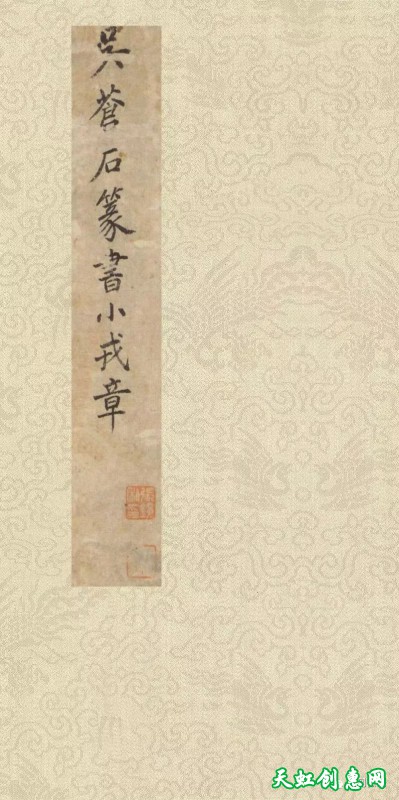 吳蒼石篆書小戎章
天虹创惠网